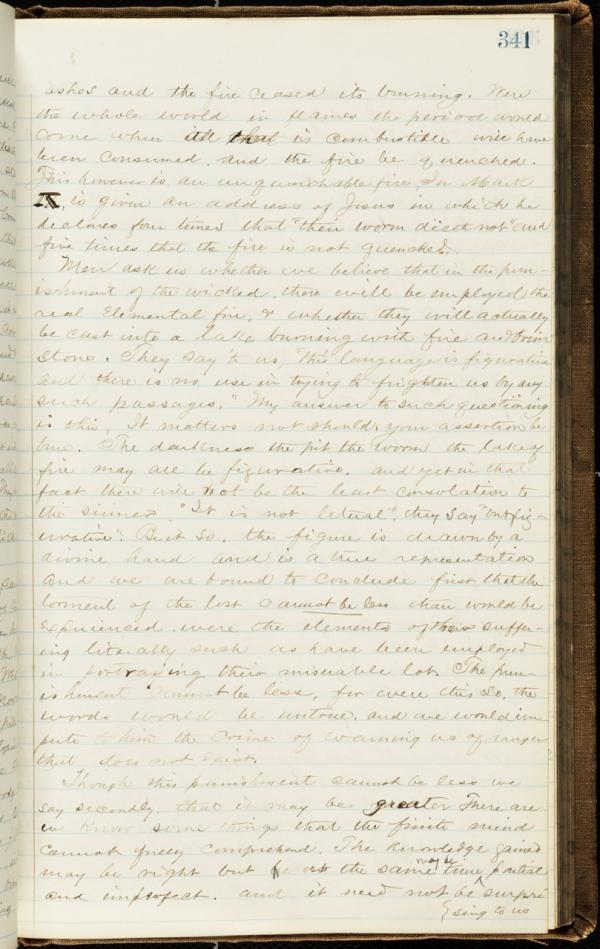 341
ashes and the fire ceased its burning. Were
the whole world in flames the period would
come when all that is combustible will have
been consumed, and the fire be quenched.
This however is an unquenchable fire. In Mark
IX, is given an address of Jesus in which he
declares four times that "their worm dieth not" and
five times that the fire is not quenched.
Men ask us whether we believe that in the pun-
ishment of the wicked, there will be employed the
real Elemental fire, & whether they will actually
be cast into a lake burning with fire and brim
stone. They say to us, "this language is figurative
and there is no use in trying to frighten us by any
such passages." My answer to such questioning
is this, It matters not should your assertion be
true. The darkness the pit the worm the lake of
fire may all be figurative. and yet in that
fact there will not be the least consolation to
the sinner. "It is not literal", they say "but fig-
urative". Be it so, the figure is drawn by a
divine hand and is a true representation
and we are bound to conclude first that the
torment of the lost cannot be less than would be
experienced were the elements of this suffer-
ing literally such as have been employed
in portraying their miserable lot. The pun-
ishment cannot be less, for were this so, the
words would be untrue. and we would im
pute to him the crime of warning us of danger
that does not exist.
Though this punishment cannot be less we
say secondly that it may be greater There are
we know some things that the finite mind
cannot fully comprehend. The knowledge gained
may be right but at the same time may be partial
and imperfect. and it need not be surpri
sing to us